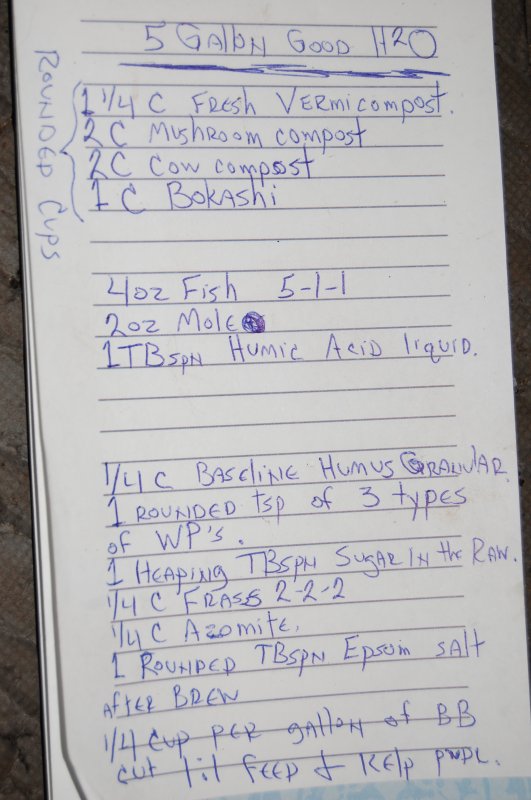 5 Gallon Good H2O
Rounded Cups
1 1/4 C Fresh Vermicompost.
2 C Mushroom compost
2 C Cow compost
1 C Bokashi
4oz Fish 5-1-1
2oz Mole
1 TBspn Humic Acid liquid.
1/4 C Baseline Humus Granular
1 Rounded tsp of 3 types
of WP's.
1 Heaping TBspn Sugar In the Raw.
1/4 C Frass 2-2-2
1/4 C Azomite.
1 Rounded TBspn Epsom salt
After Brew
1/4 cup per gallon of BB
cut 1:1 feed & Kelp pwdr.